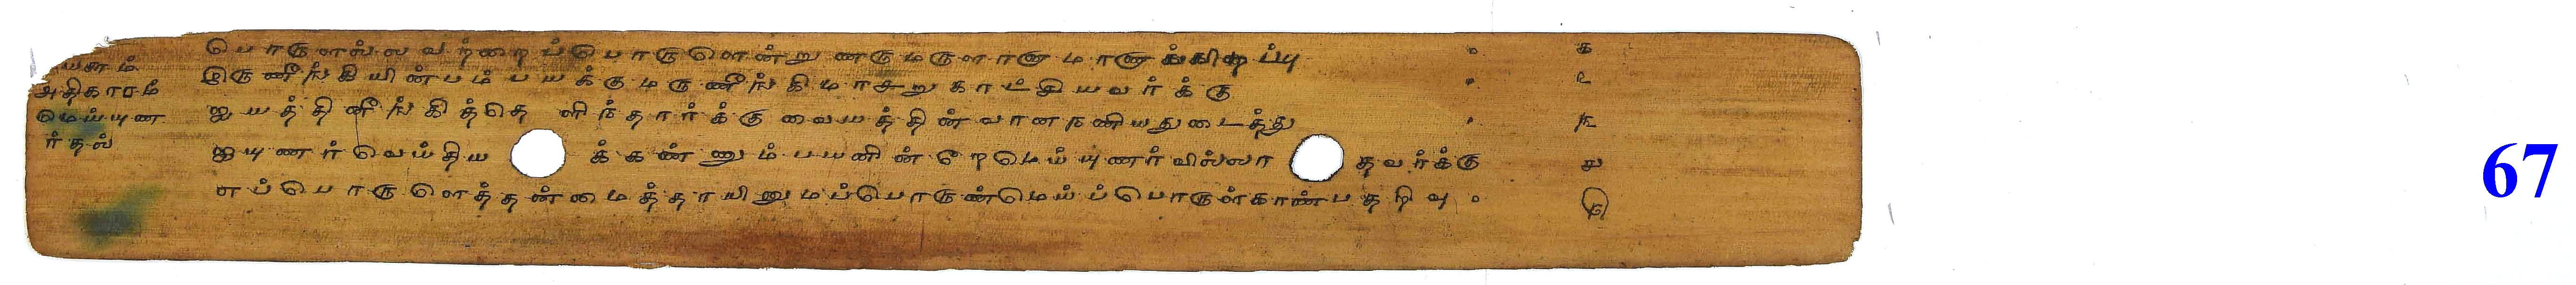 பொருளல்லவற்றைப்பொருளென்றுணருமருளானாமாணாப்பிறப்பு ௦ ௧
இருணீங்கியின்பம்பயக்குமருணீங்கிமாசறுகாட்சியவர்க்கு ௦ ௨
ஐயத்தினீங்கித்தெளிந்தார்க்குவையத்தின்வானநணியதுடைத்து ௦ ௩
ஐயுணர்வெய்தியக்கண்ணும்பயனின்றேமெய்யுணர்வில்லாதவர்க்கு ௪
எப்பொருளெத்தன்மைத்தாயினுமப்பொருண்மெய்ப்பொருள்காண்பதறிவு ௦ ௫
அதிகாரம்
மெய்யுண
ர்தல்
67